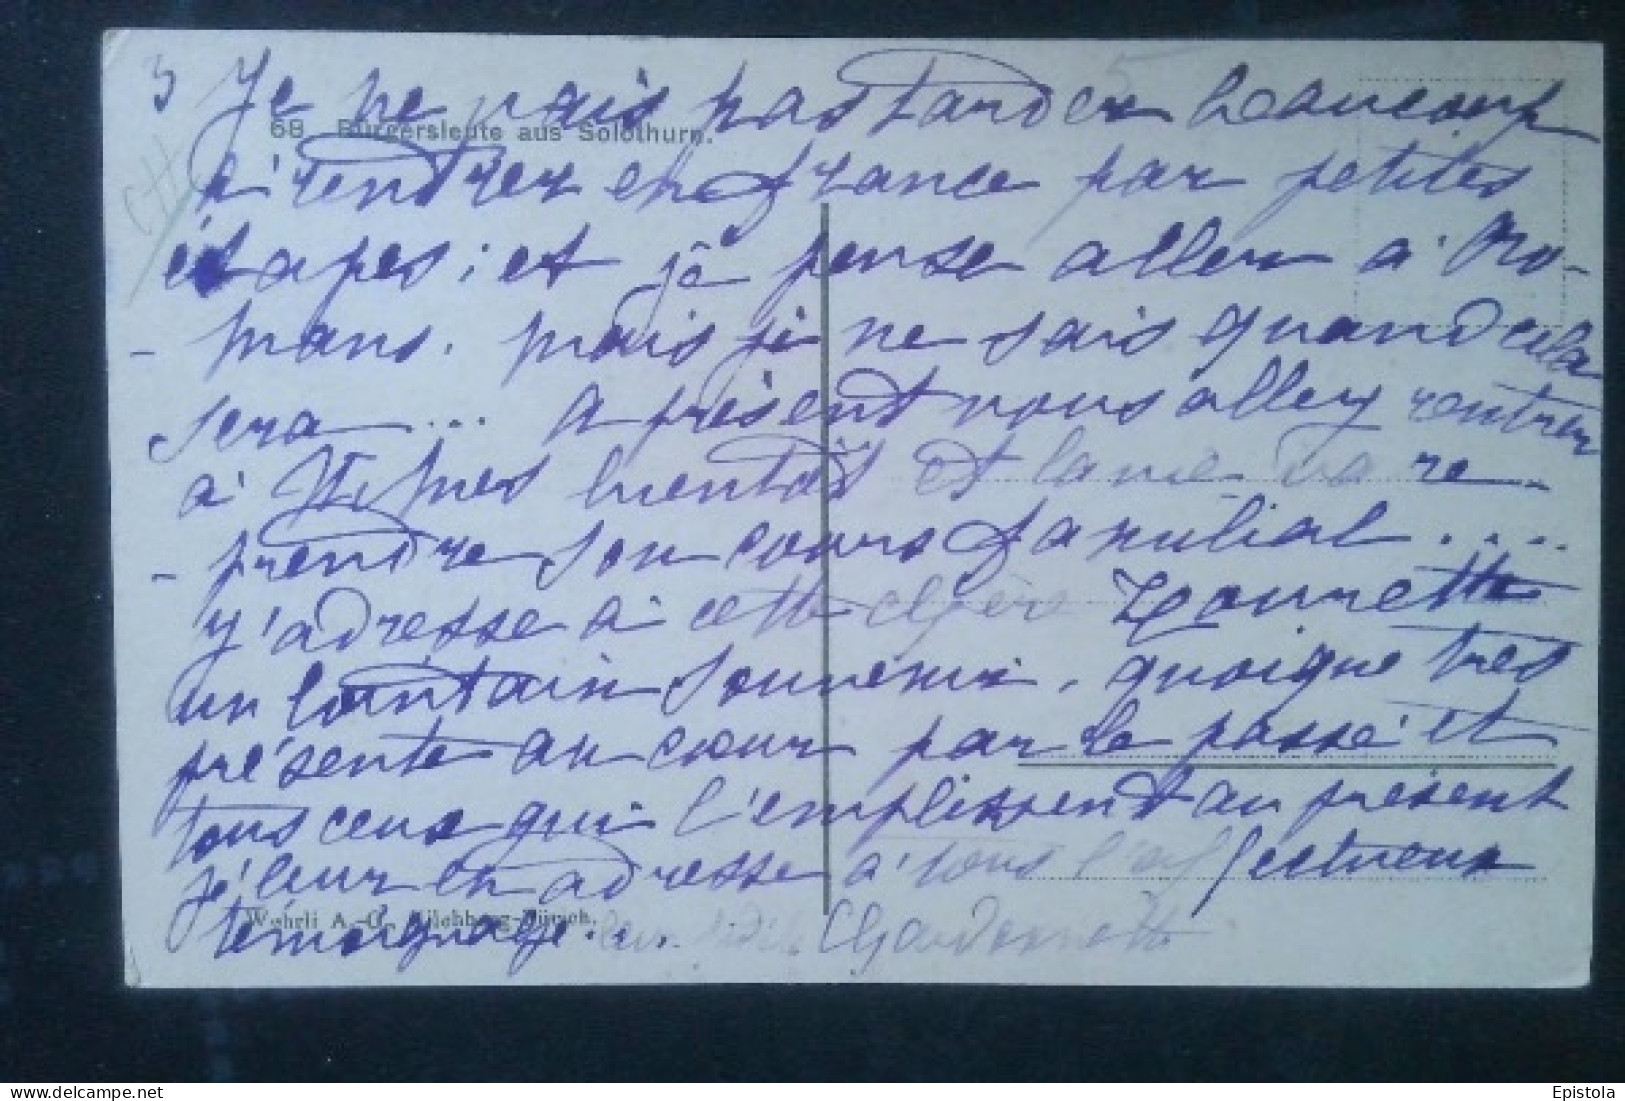 3 Je ne vais pas tarder beaucoup
68 Bürgersleute aus Solothurn.
à rentrer en france par petites
étapes ; et je pense aller à Ro-
- mans. mais je ne sais quand cela
sera ... à présent vous allez rentrer
à bientôt et la vie va re-
- prendre son cours familial ....
j'adresse à cette chère
un lointain souvenir. quoique très
présente au cœur par le passé et
tous ceux qui l'emplissent au présent
je leur en adresse à tous l'affectueux
Wehrli A.-G., Kilchberg-Zürich.
témoignage...
Epistola